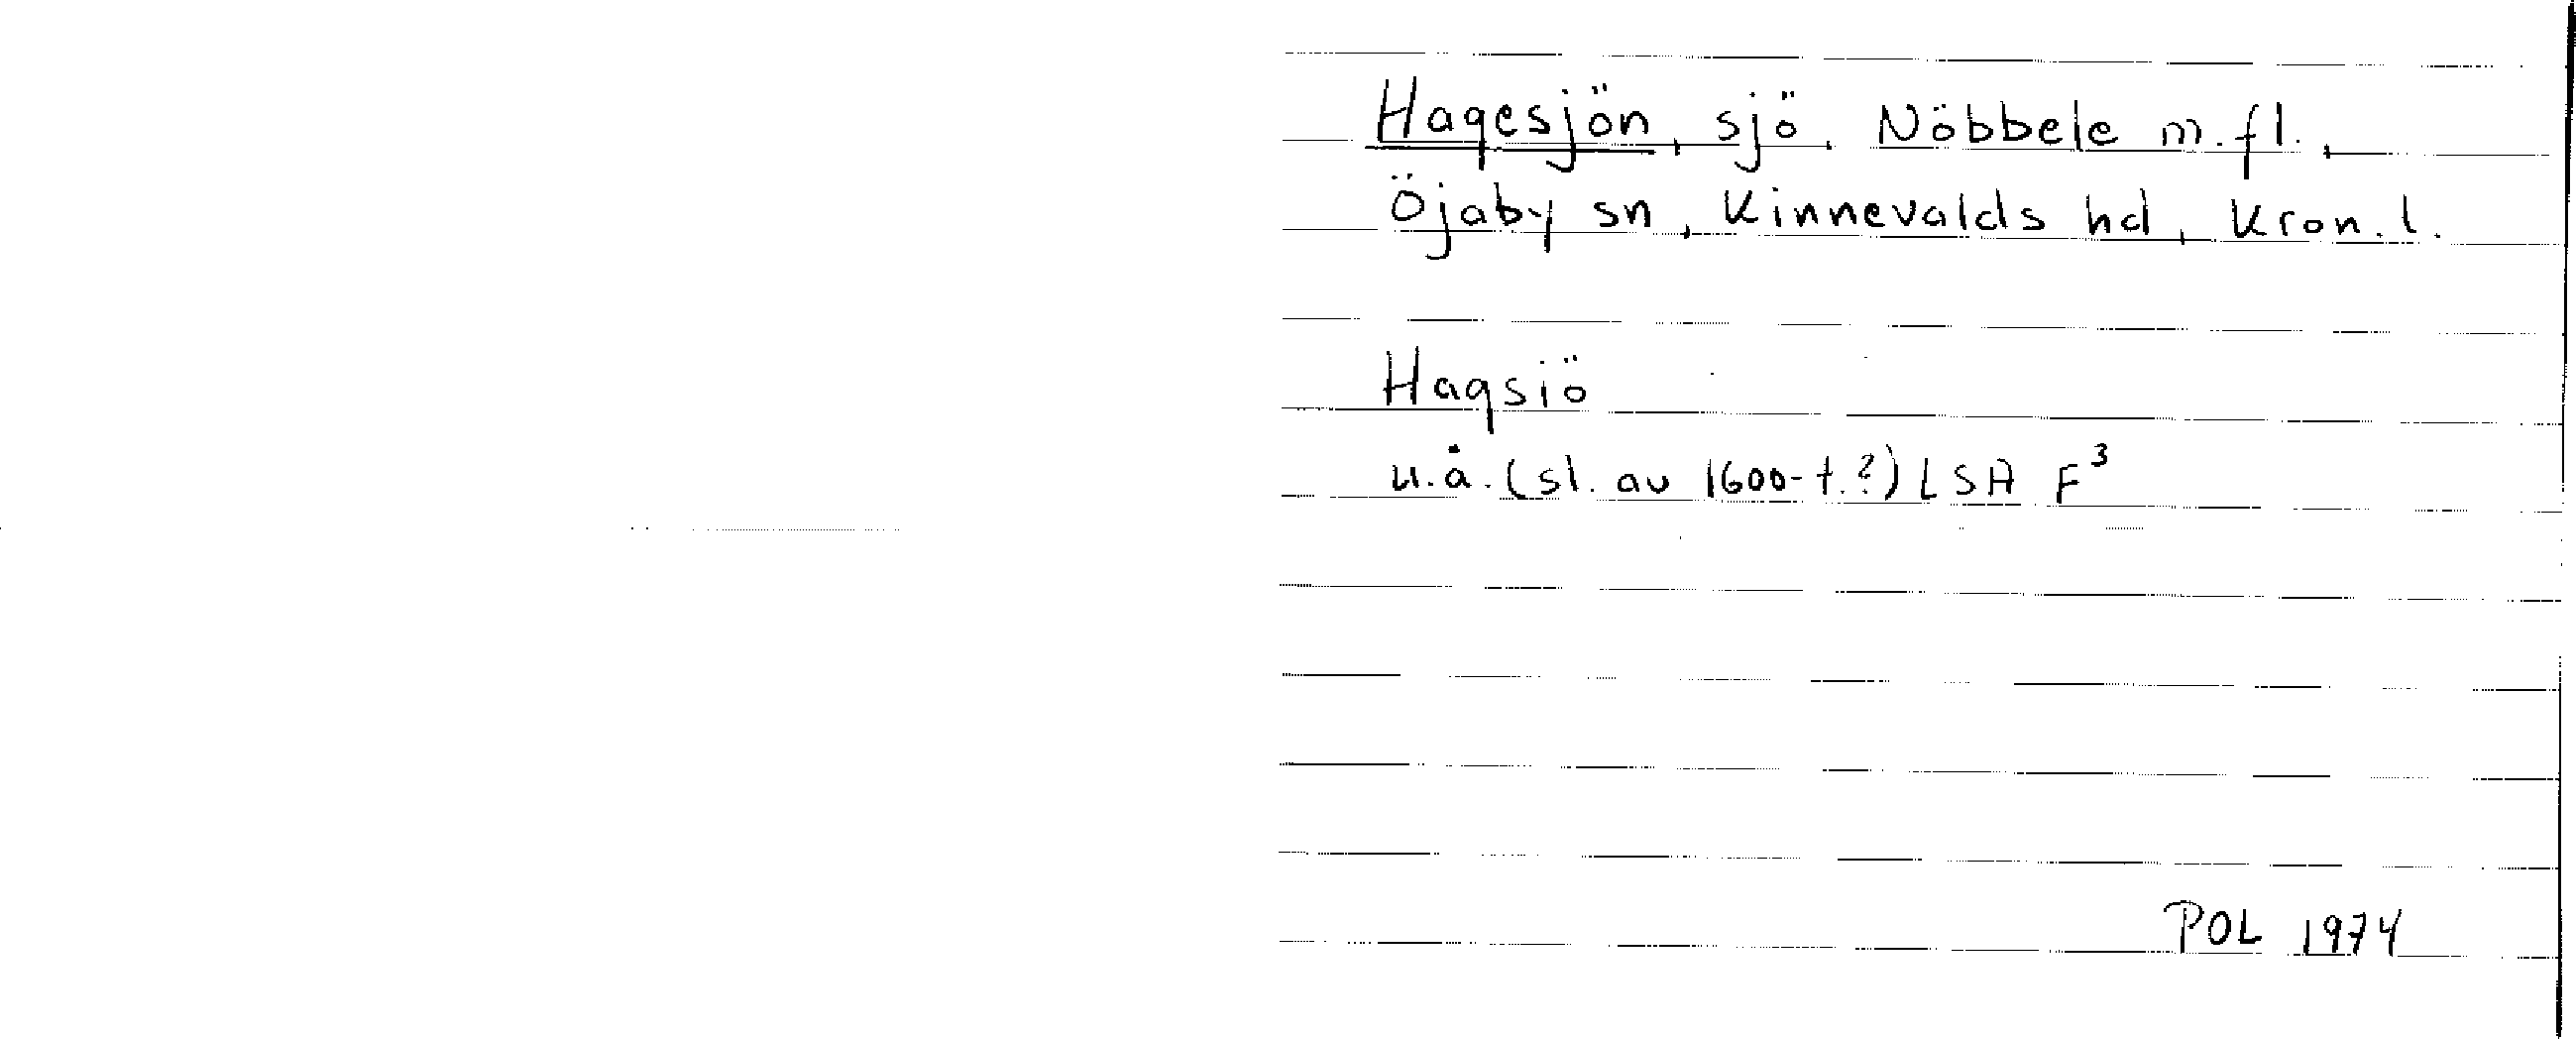 Hagesjön, sjö, Nöbbele m.fl.,
Öjaby sn, Kinnevalds hd, Kron.l.
Hagsiö
u.å. (sl. av 1600-t.?) LSA F³
POL 1974